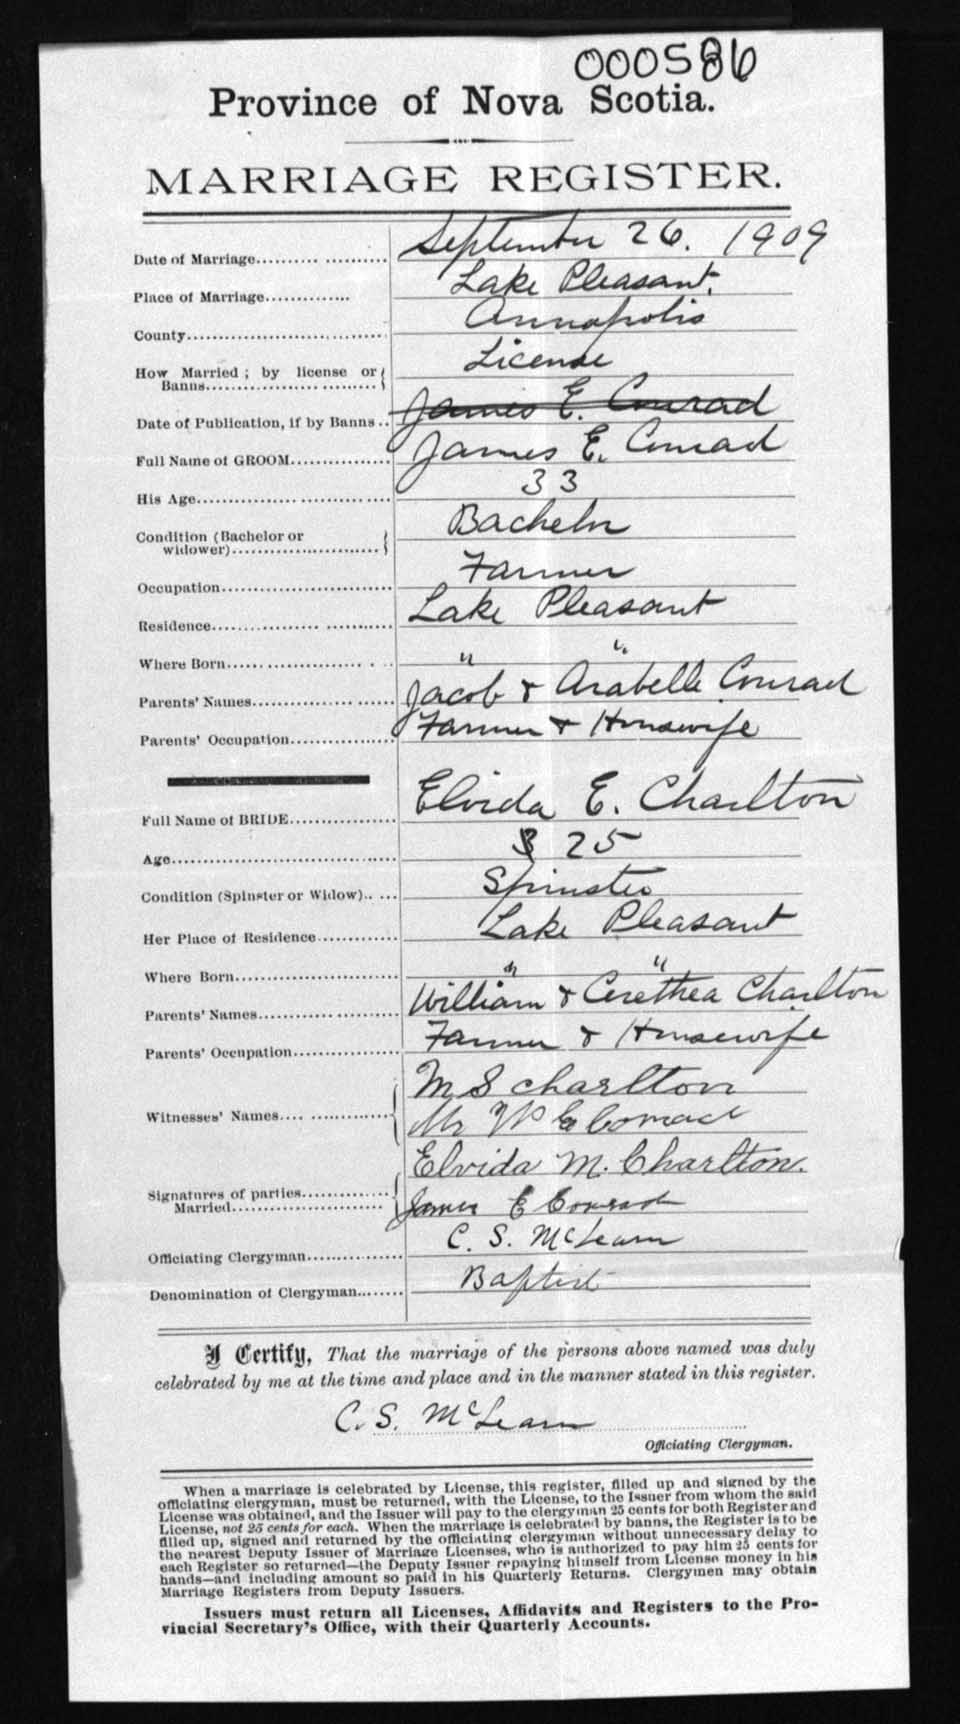 000586
Province of Nova Scotia.
MARRIAGE REGISTER.
Date of Marriage.................... September 26. 1909
Place of Marriage.............. Lake Pleasant.
County................................ Annapolis
How Married ; by license or License
Banns............................
Date of Publication, if by Banns.. James E. Conrad
Full Name of GROOM............... James E. Conrad
His Age............................... 33
Condition (Bachelor or Bachelor
widower)..........................
Occupation............................ Farmer
Residence............................. Lake Pleasant
Where Born.......................... " "
Parents' Names...................... Jacob & Arabelle Conrad
Parents' Occupation................ Farmer & Housewife
Full Name of BRIDE................ Elvida E. Charlton
Age.................................... 3 25
Condition (Spinster or Widow)..... Spinster
Her Place of Residence............ Lake Pleasant
Where Born.......................... " "
Parents' Names...................... William & Cerethea Charlton
Parents' Occupation................ Farmer & Housewife
M S Charlton
Witnesses' Names.................. Mr W E Conrad
Elvida M. Charlton.
Signatures of parties.............. James E Conrad
Married.........................
Officiating Clergyman.............. C. S. McLearn
Denomination of Clergyman........ Baptist
I Certify, That the marriage of the persons above named was duly
celebrated by me at the time and place and in the manner stated in this register.
C. S. McLearn
Officiating Clergyman.
When a marriage is celebrated by License, this register, filled up and signed by the
officiating clergyman, must be returned, with the License, to the Issuer from whom the said
License was obtained, and the Issuer will pay to the clergyman 25 cents for both Register and
License, not 25 cents for each. When the marriage is celebrated by banns, the Register is to be
filled up, signed and returned by the officiating clergyman without unnecessary delay to
the nearest Deputy Issuer of Marriage Licenses, who is authorized to pay him 25 cents for
each Register so returned—the Deputy Issuer repaying himself from License money in his
hands—and including amount so paid in his Quarterly Returns. Clergymen may obtain
Marriage Registers from Deputy Issuers.
Issuers must return all Licenses, Affidavits and Registers to the Pro-
vincial Secretary's Office, with their Quarterly Accounts.